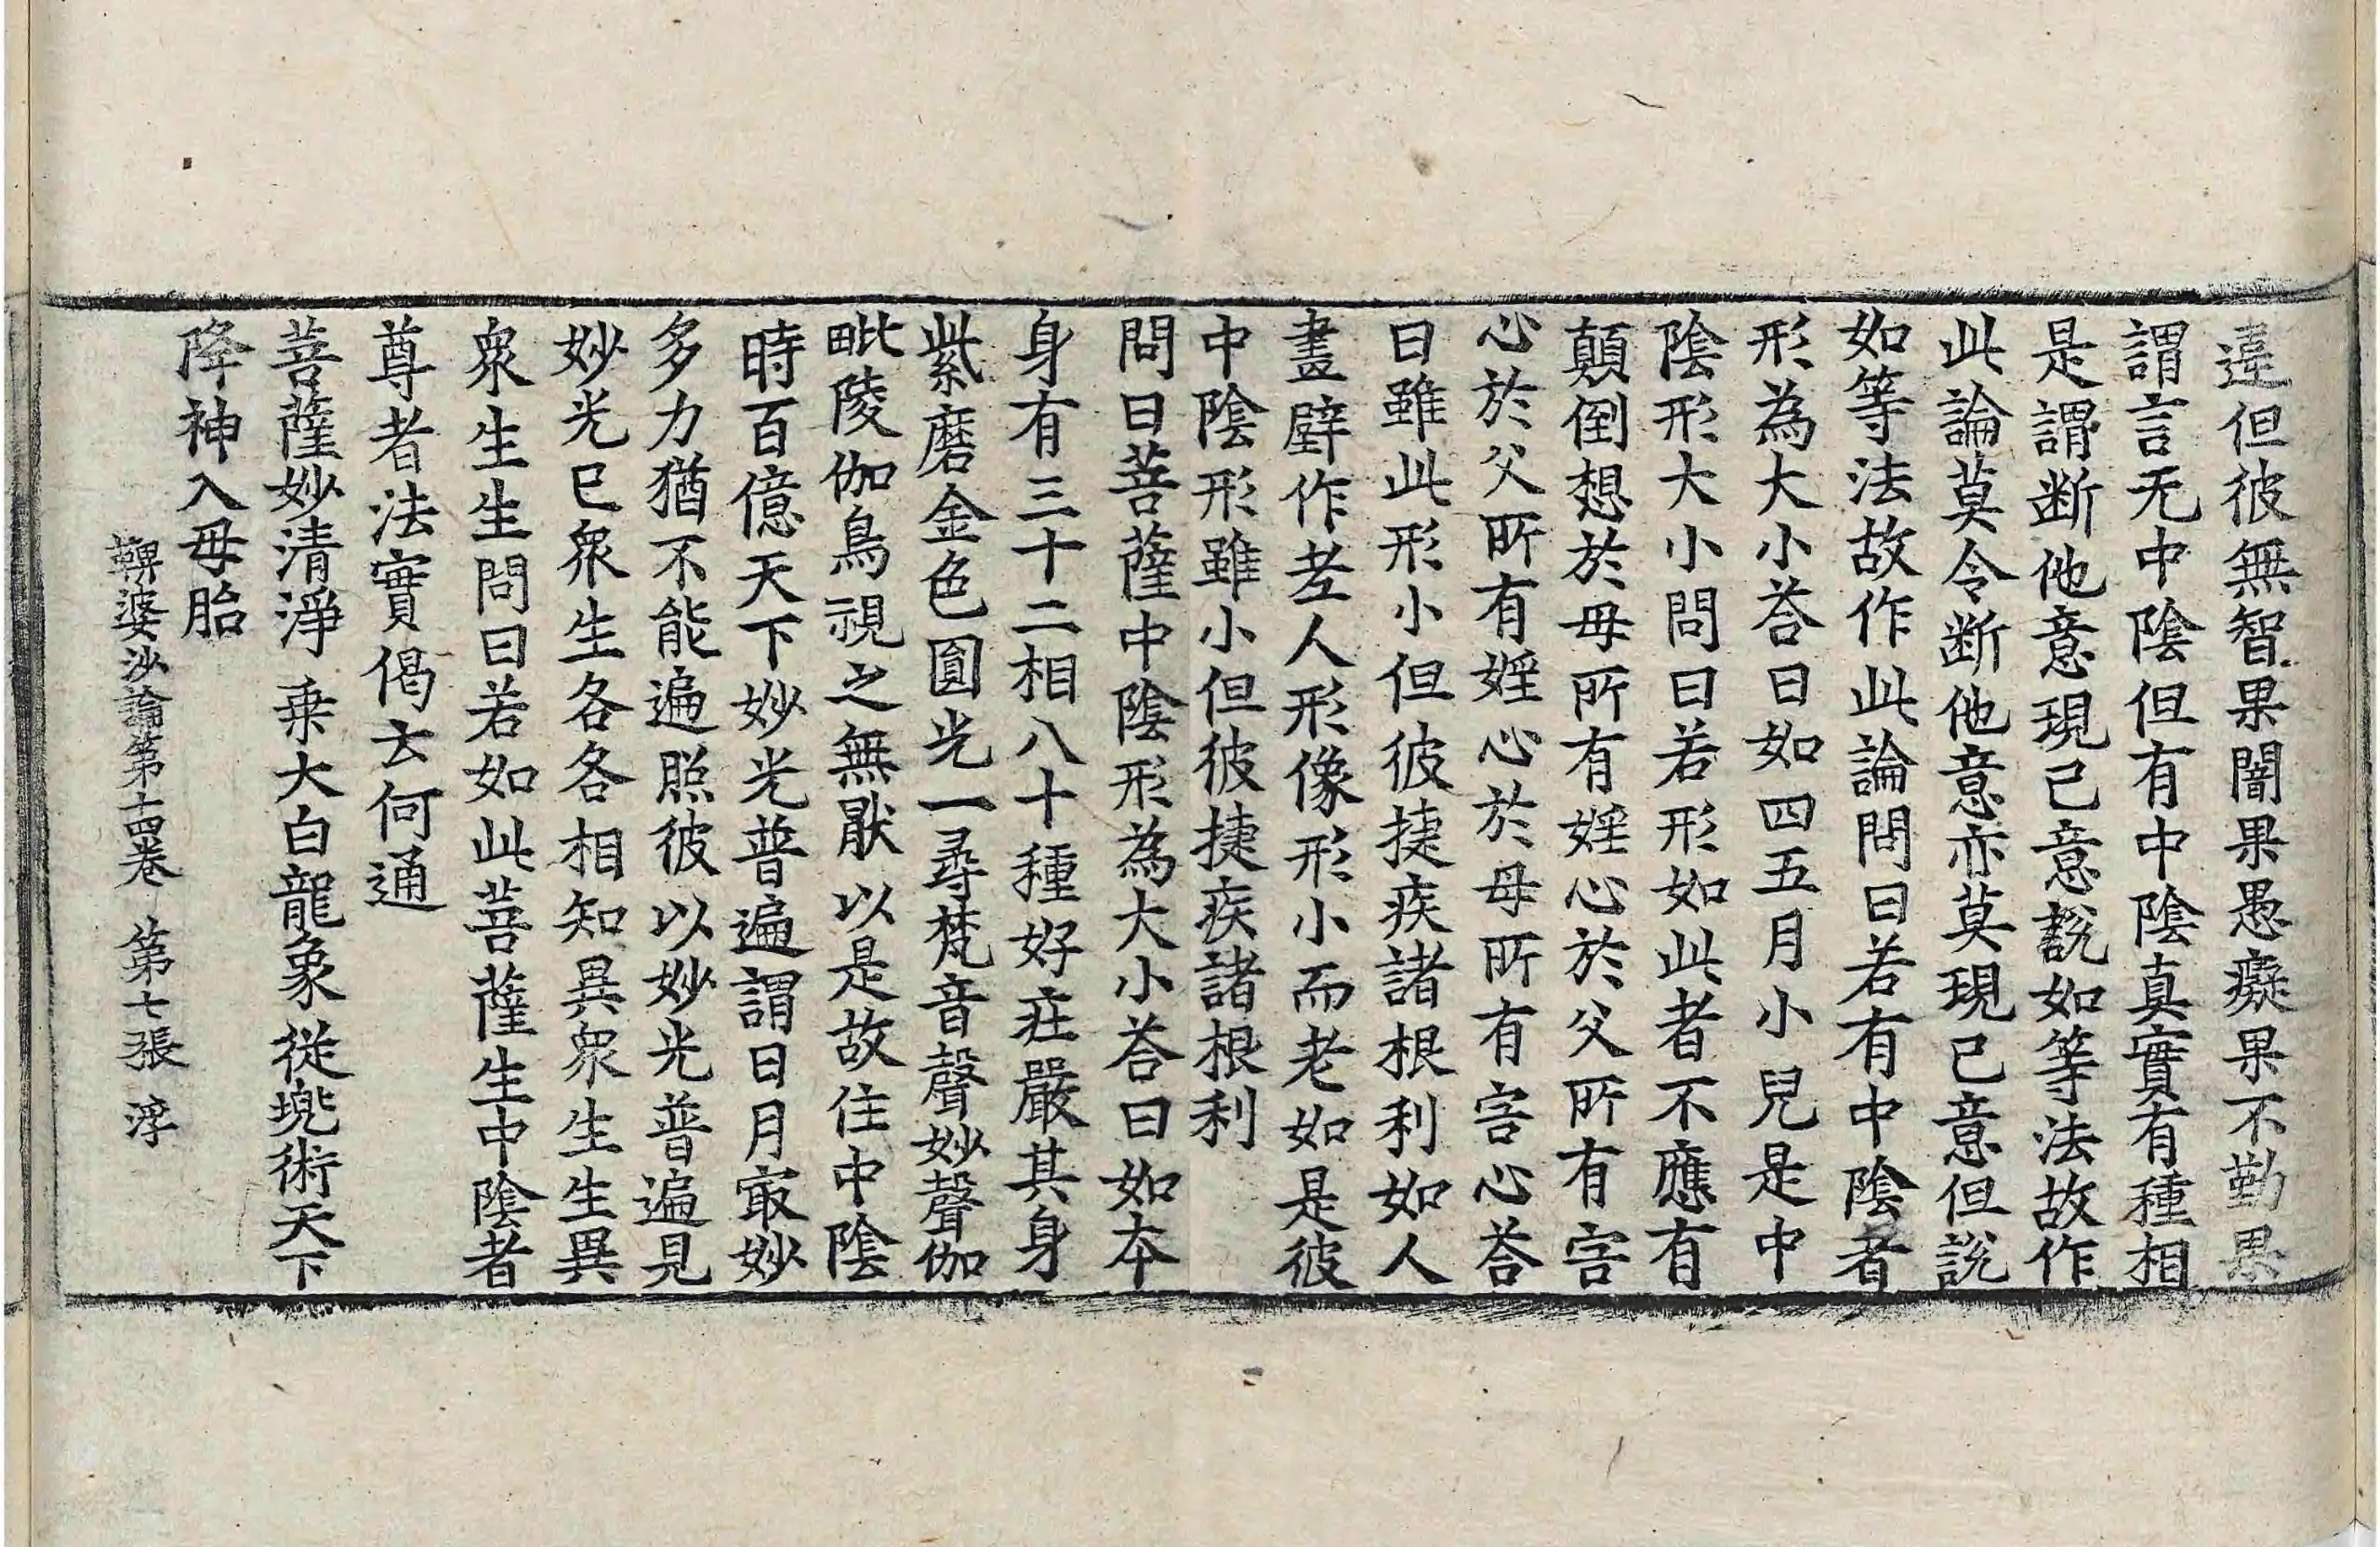 違但彼無智果闇果愚癡果不勤果
謂言无中陰但有中陰真實有種相
是謂断他意現己意說如等法故作
此論莫令断他意亦莫現己意但說
如等法故作此論問曰若有中陰者
形為大小荅曰如四五月小兒是中
陰形大小問曰若形如此者不應有
顛倒想於母所有婬心於父所有害
心於父所有婬心於母所有害心荅
曰雖此形小但彼捷疾諸根利如人
畫壁作老人形像形小而老如是彼
中陰形雖小但彼捷疾諸根利
問曰菩薩中陰形為大小荅曰如本
身有三十二相八十種好莊嚴其身
紫磨金色圓光一尋梵音聲妙聲伽
毗陵伽鳥視之無厭以是故住中陰
時百億天下妙光普遍謂日月最妙
多力猶不能遍照彼以妙光普遍見
妙光已衆生各各相知異衆生生異
衆生生問曰若如此菩薩生中陰者
尊者法實偈云何通
菩薩妙清淨 乗大白龍象 從兠術天下
降神入母胎
鞞婆沙論第十四卷 第七張 浮